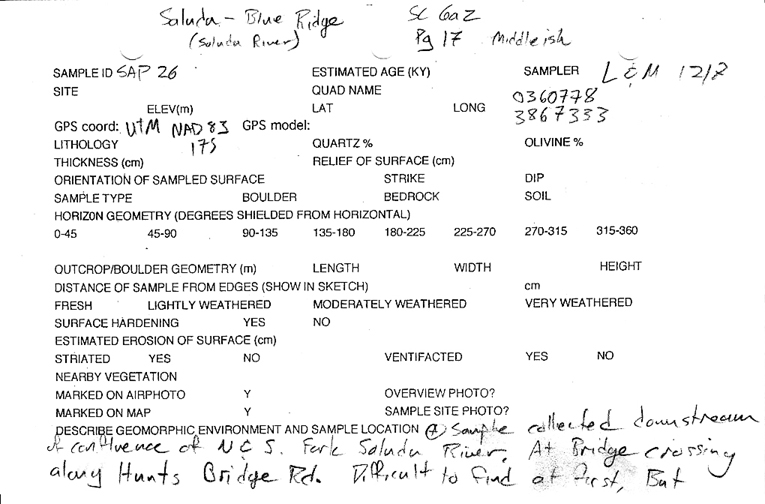 Saluda - Blue Ridge SC Gaz
(Saluda River) Pg 17 Middleish
SAMPLE ID SAP 26 ESTIMATED AGE (KY) SAMPLER L&M 12/8
SITE QUAD NAME 0360778
ELEV(m) LAT LONG 3867333
GPS coord: UTM NAD 83 GPS model:
LITHOLOGY 17S QUARTZ % OLIVINE %
THICKNESS (cm) RELIEF OF SURFACE (cm)
ORIENTATION OF SAMPLED SURFACE STRIKE DIP
SAMPLE TYPE BOULDER BEDROCK SOIL
HORIZON GEOMETRY (DEGREES SHIELDED FROM HORIZONTAL)
0-45 45-90 90-135 135-180 180-225 225-270 270-315 315-360
OUTCROP/BOULDER GEOMETRY (m) LENGTH WIDTH HEIGHT
DISTANCE OF SAMPLE FROM EDGES (SHOW IN SKETCH) cm
FRESH LIGHTLY WEATHERED MODERATELY WEATHERED VERY WEATHERED
SURFACE HARDENING YES NO
ESTIMATED EROSION OF SURFACE (cm)
STRIATED YES NO VENTIFACTED YES NO
NEARBY VEGETATION
MARKED ON AIRPHOTO Y OVERVIEW PHOTO?
MARKED ON MAP Y SAMPLE SITE PHOTO?
DESCRIBE GEOMORPHIC ENVIRONMENT AND SAMPLE LOCATION Sample collected downstream
of confluence of N & S. Fork Saluda River, At Bridge crossing
along Hunts Bridge Rd. Difficult to find at first, But